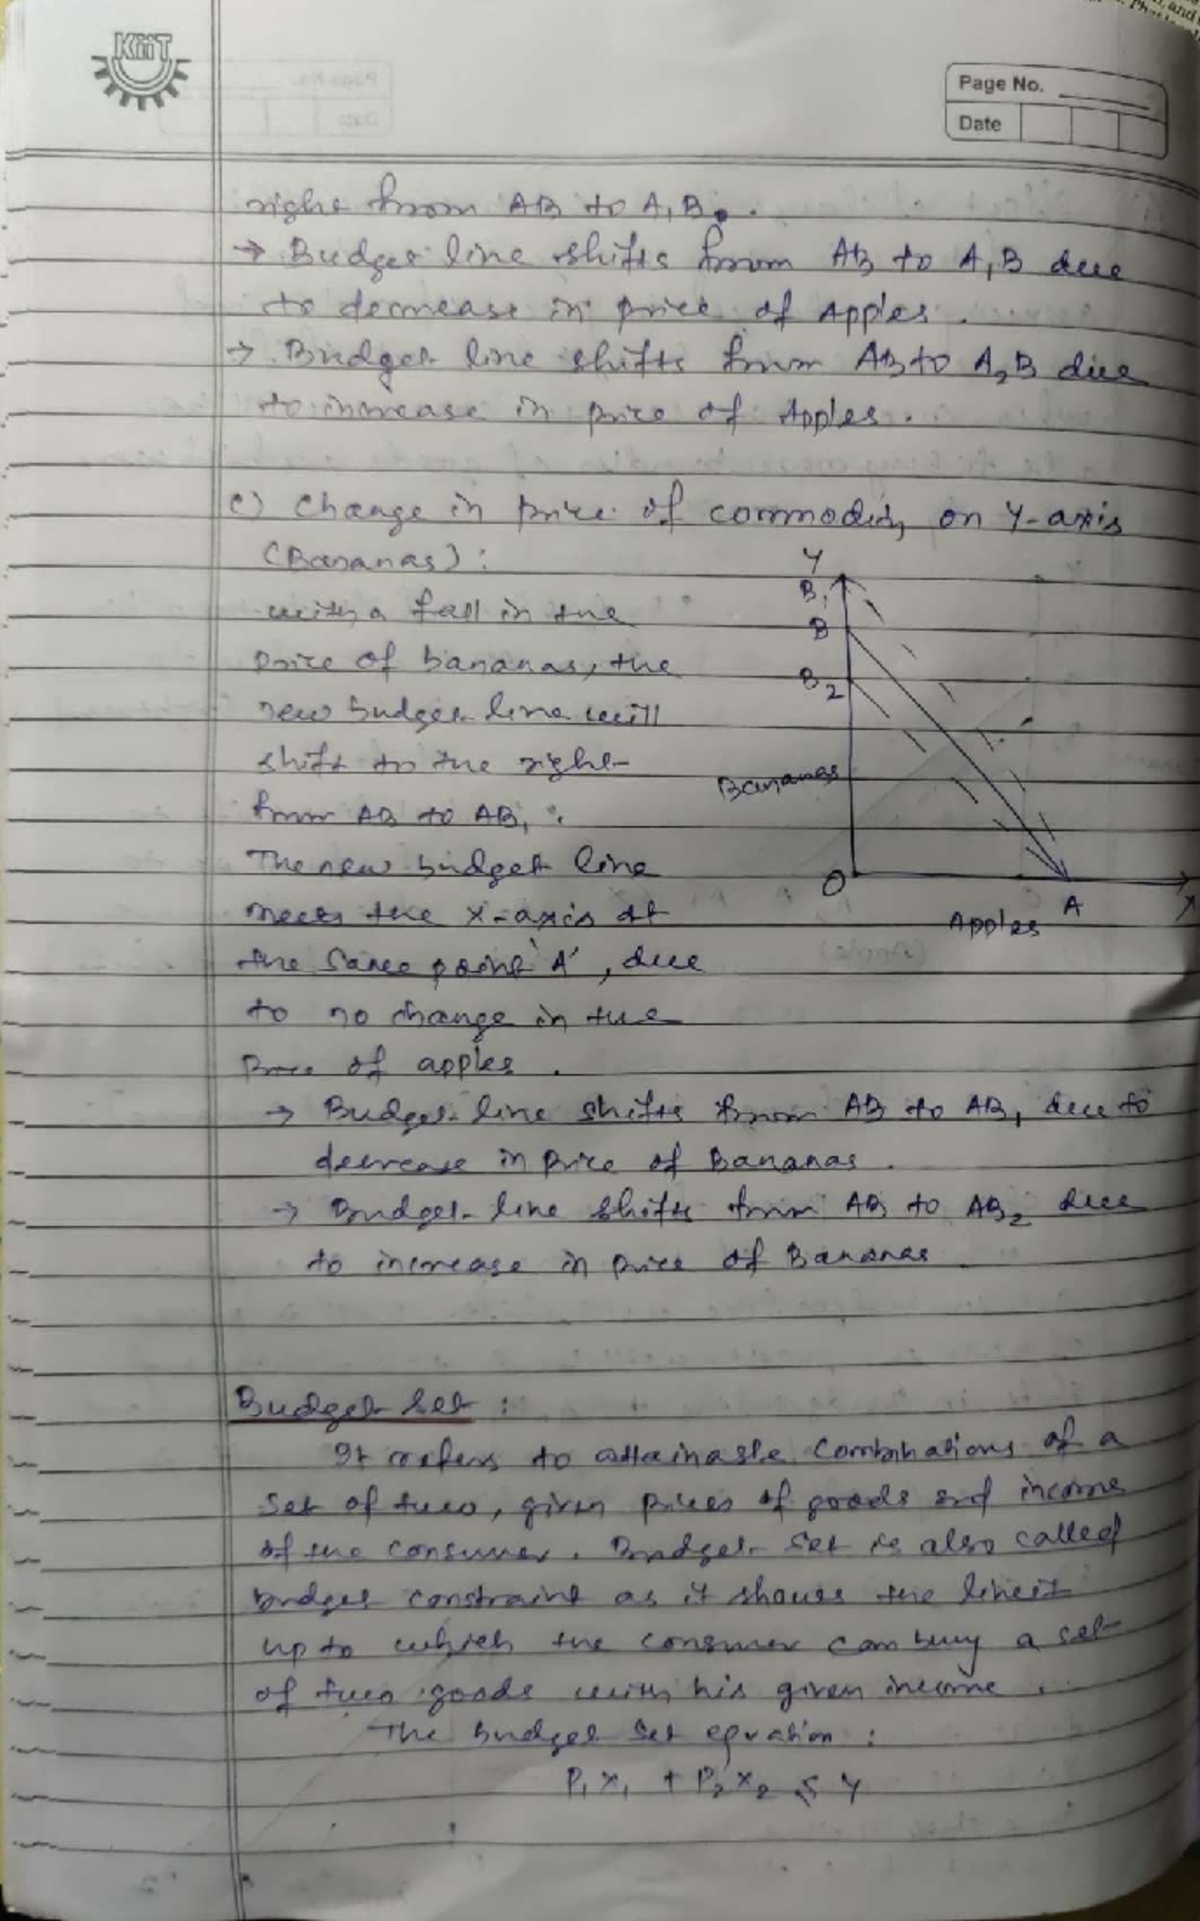 KiiT
Page No.
Date
right from AB to A1B.
→ Budget line shifts from AB to A1B due
to decrease in price of Apples.
→ Budget line shifts from AB to A2B due
to increase in price of Apples.
c) Change in price of commodity on Y-axis
(Bananas):
with a fall in the
price of bananas, the
new budget line will
shift to the right
from AB to AB1.
The new budget line
meets the X-axis at
the same point 'A', due
to no change in the
Price of apples.
Y
B1
B
B2
Bananas
O
Apples
A
X
→ Budget line shifts from AB to AB1 due to
decrease in price of Bananas.
→ Budget line shifts from AB to AB2 due
to increase in price of Bananas
Budget Set:
It refers to attainable combinations of a
set of two, given prices of goods and income
of the consumer. Budget set is also called
budget constraint as it shows the limit
up to which the consumer can buy a set
of two goods with his given income.
The budget set equation:
P1X1 + P2X2 ≤ Y